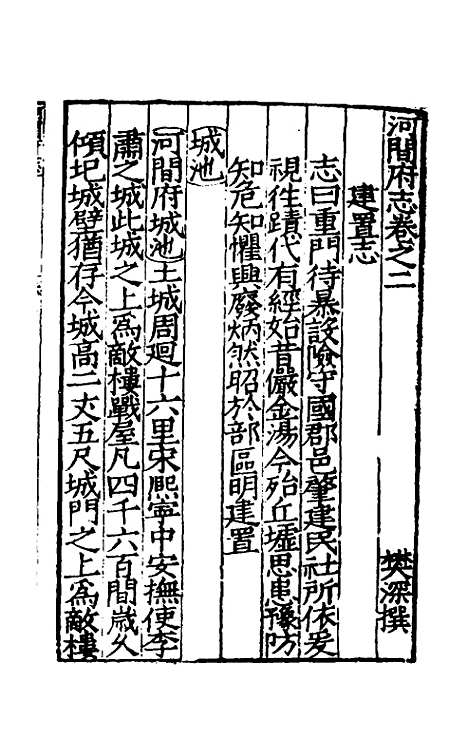 河間府志卷之二 樊深撰
建置志
志曰重門待暴設險守國郡邑肇建民社所依爰
視徃蹟代有經始昔儼金湯今殆丘墟思患豫防
知危知懼興廢炳然昭於部區明建置
城池
河間府城池土城周廻十六里宋熈寧中安撫使李
肅之城此城之上為敵樓戰屋凡四千六百間歲久
傾圮城壁猶存今城高二丈五尺城門之上為敵樓